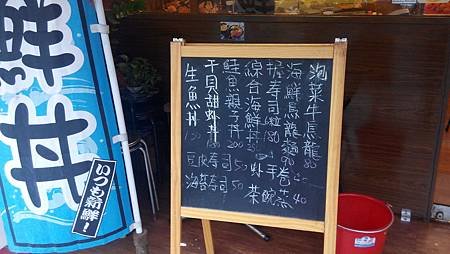 鮮丼
いつも新鮮!
泡菜牛烏龍 80
海鮮烏龍麵 90
握壽司6粒 180
綜合海鮮丼 250
鮭魚親子丼 200
干貝甜蝦丼 180
生魚丼 150
炒手卷 40
茶碗蒸 40
豆皮壽司 50
海苔壽司 50